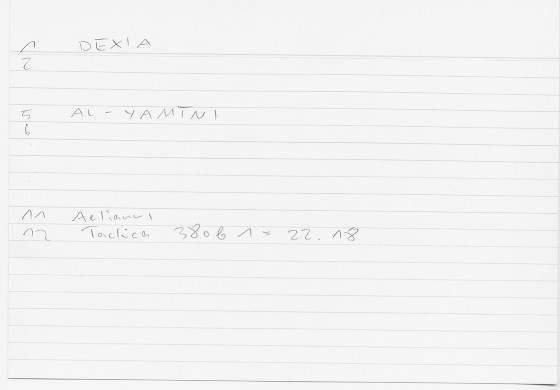 1 DEXIA
2
5 AL-YAMĪNI
6
11 Aelianus
12 Tactica 380b 1 = 22.18